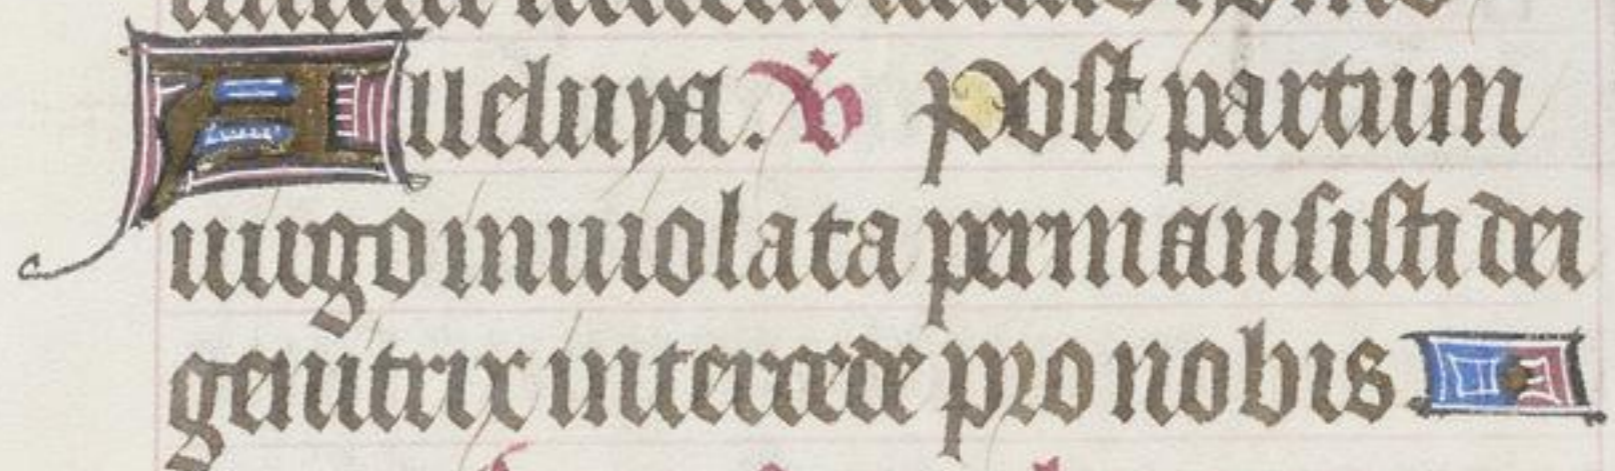 Alleluya. ℣ Post partum
uirgo inuiolata permansisti dei
genitrix intercede pro nobis